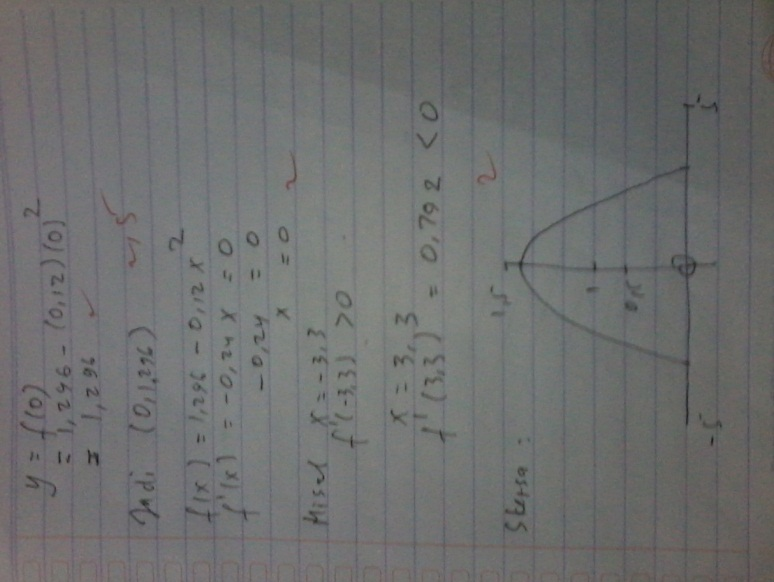 y = f(0)
= 1,296 - (0,12)(0)²
= 1,296
Jadi (0,1,296)
f(x) = 1,296 - 0,12x²
f'(x) = -0,24x = 0
-0,24 = 0
x = 0
Misal x = -3,3
f'(-3,3) > 0
x = 3,3
f'(3,3) = 0,792 < 0
2
2
Sketsa :
1,5
1
0,5
-5
5